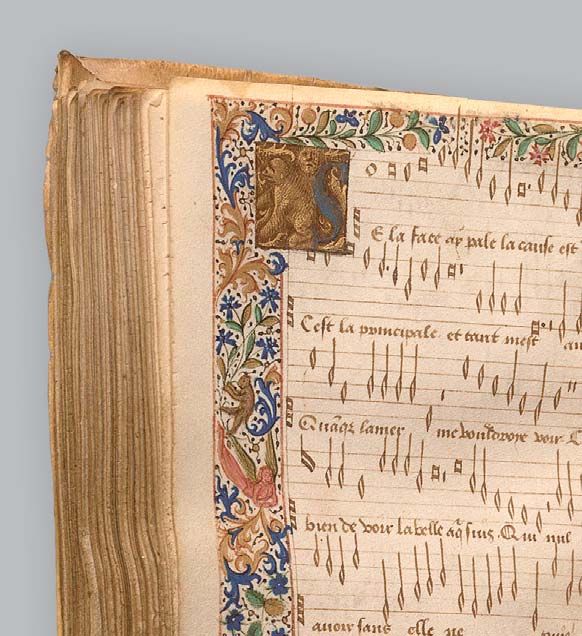 SE la face ay pale la cause est
Cest la principale et tant mest
lamer me vouldroye voir
bien de voir labelle aq̃ suis Qui nul
avoir sans elle ne